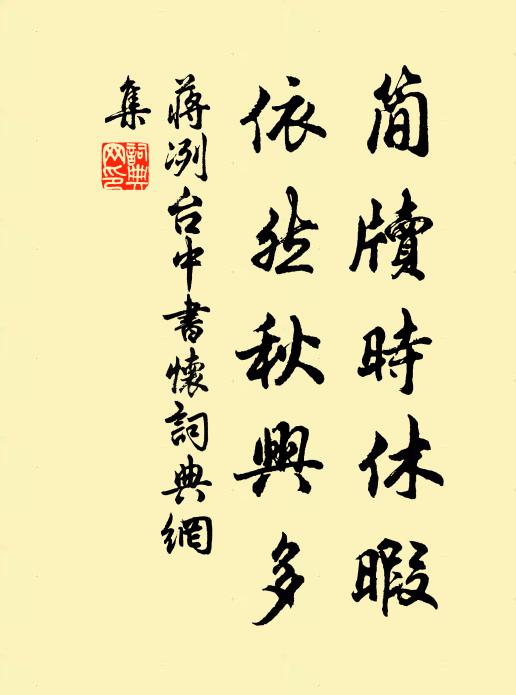 简牘時休暇
依然秋興多
蔣洌台中書懷詞典網
集
詞典網印